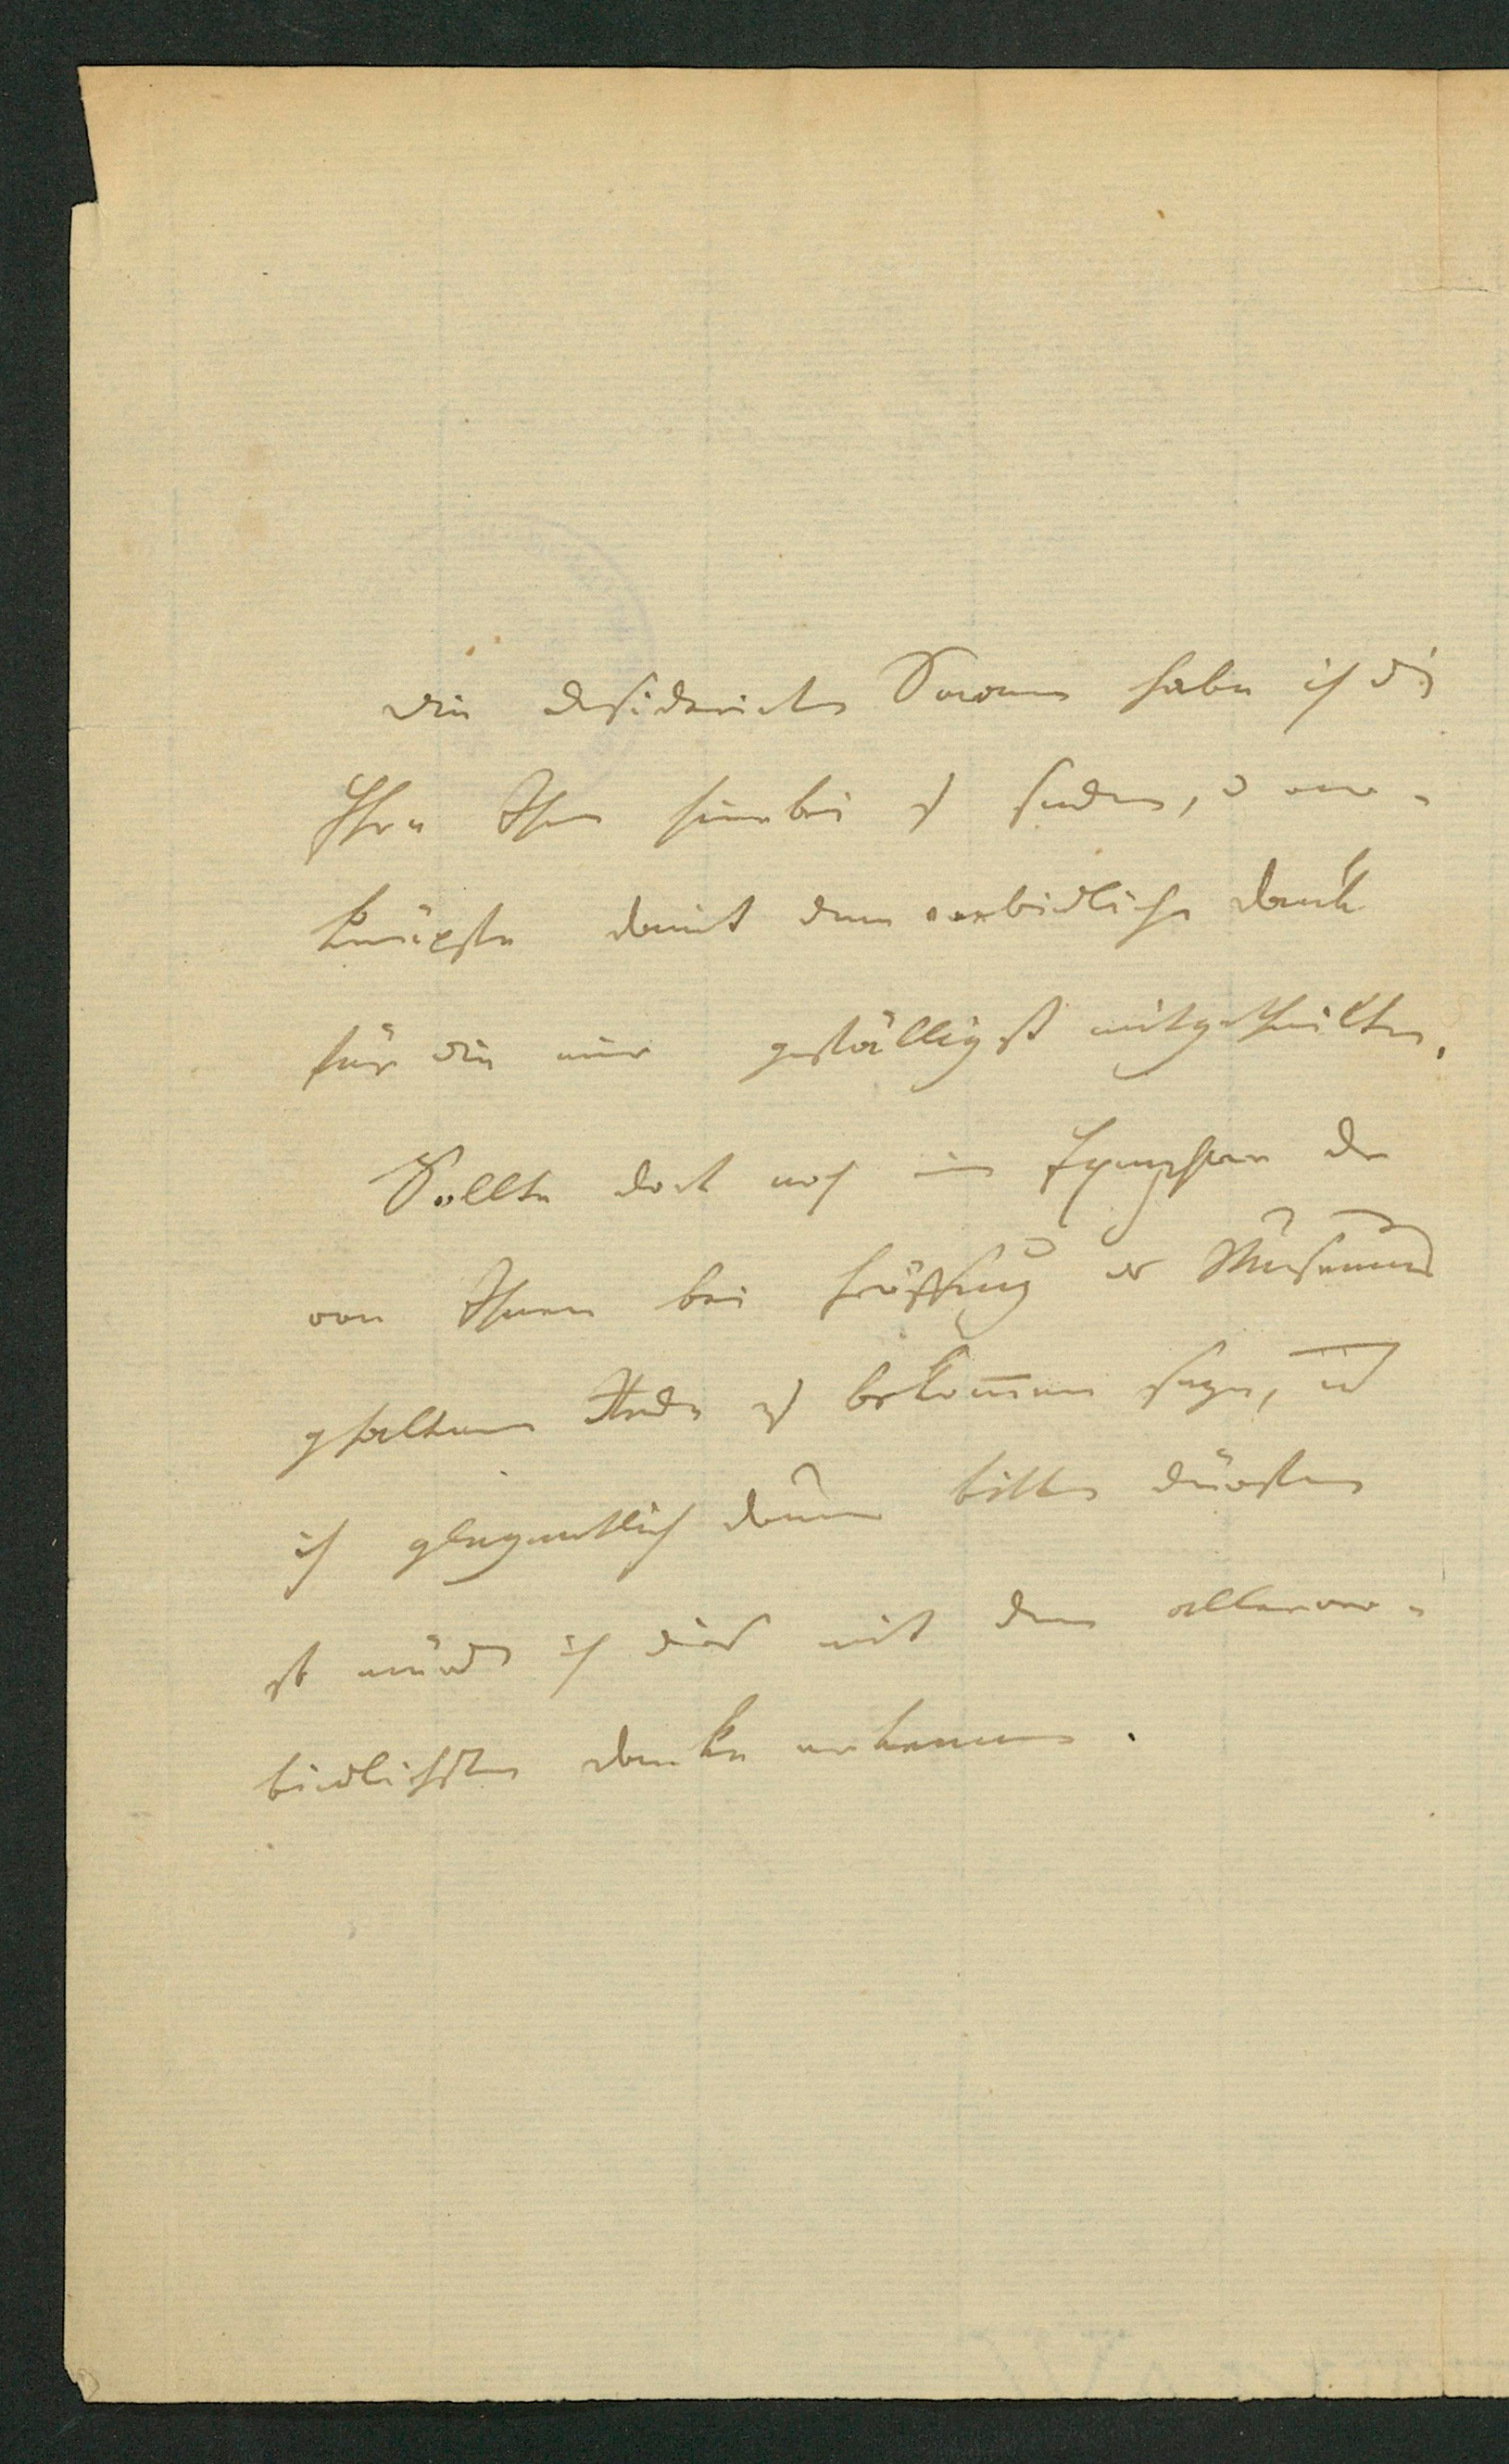 Die desiderirten Samen habe ich die
Ehre Ihnen hierbei zu senden, u ver-
knüpfe damit den verbindlichen Dank
für die mir gefälligst mitgetheilten.
Sollte dort noch ein Exemplar der
von Ihnen bei Eröffnung des Museums
gehaltenen Rede zu bekommen seyn, und
ich gelegentlich darum bitten dürfen
so würde ich dies mit dem allerver-
bindlichsten Danke erkennen.